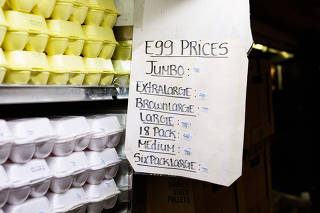 EGG PRICES
JUMBO:
EXTRALARGE:
BROWNLARGE:
LARGE:
18 PACK:
MEDIUM:
SIXPACKLARGE: